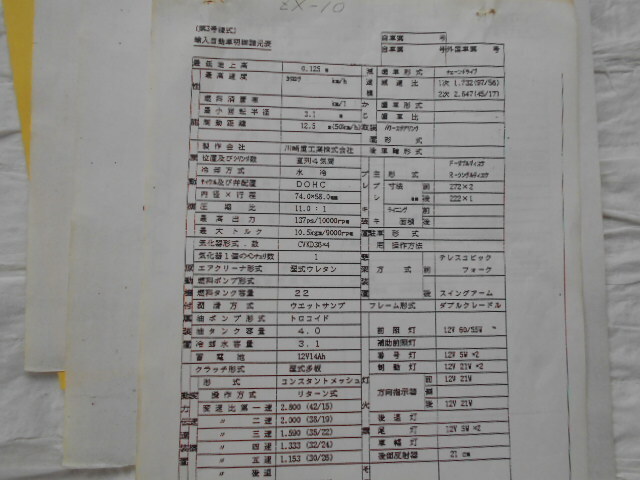 ZX-10
(第3号様式)
輸入自動車明細諸元表
台車第 号
台車第 号 外国車第 号
最低地上高 0.125 m
最高速度 km/h
燃料消費率 km/l
最小回転半径 3.1 m
制動距離 12.5 m(50km/h)
減 歯車形式 チェーンドライブ
速 減速比 1次 1.732(97/56)
機 2次 2.647(45/17)
か 歯車形式
じ 歯車比
取
形式
後車輪形式
製作会社 川崎重工業株式会社
位置及びシリンダ数 直列4気筒
冷却方式 水冷
サイクル及び弁配置 DOHC
内径×行程 74.0×58.0mm
圧縮比 11.0 : 1
最高出力 137ps/10000rpm
最大トルク 10.5kg/9000rpm
気化器形式.数 CVKD36×4
気化器1個のベンチュリ数 1
エアクリーナ形式 湿式ウレタン
燃料ポンプ形式
燃料タンク容量 22
潤滑方式 ウエットサンプ
油ポンプ形式 トロコイド
油タンク容量 4.0
冷却水容量 3.1
蓄電池 12V14Ah
クラッチ形式 湿式多板
形式 コンスタントメッシュ
操作方式 リターン式
変速比第一速 2.800 (42/15)
〃 二速 2.000 (38/19)
〃 三速 1.590 (35/22)
〃 四速 1.333 (32/24)
〃 五速 1.153 (30/26)
〃 後退
形式 F-ダブルディスク
R-シングルディスク
寸法 前 272×2
mm 後 222×1
ライニング 前
面積 後
駐車 形式
用 操作方法
懸 テレスコピック
架 方式 前 フォーク
装
置 後 スイングアーム
フレーム形式 ダブルクレードル
前照灯 12V 60/55W
補助前照灯
番号灯 12V 5W ×2
制動灯 12V 21W ×2
方向指示器 前 12V 21W
側
後 12V 21W
後退灯
尾灯 12V 5W ×2
車幅灯
後面反射器 21 cm